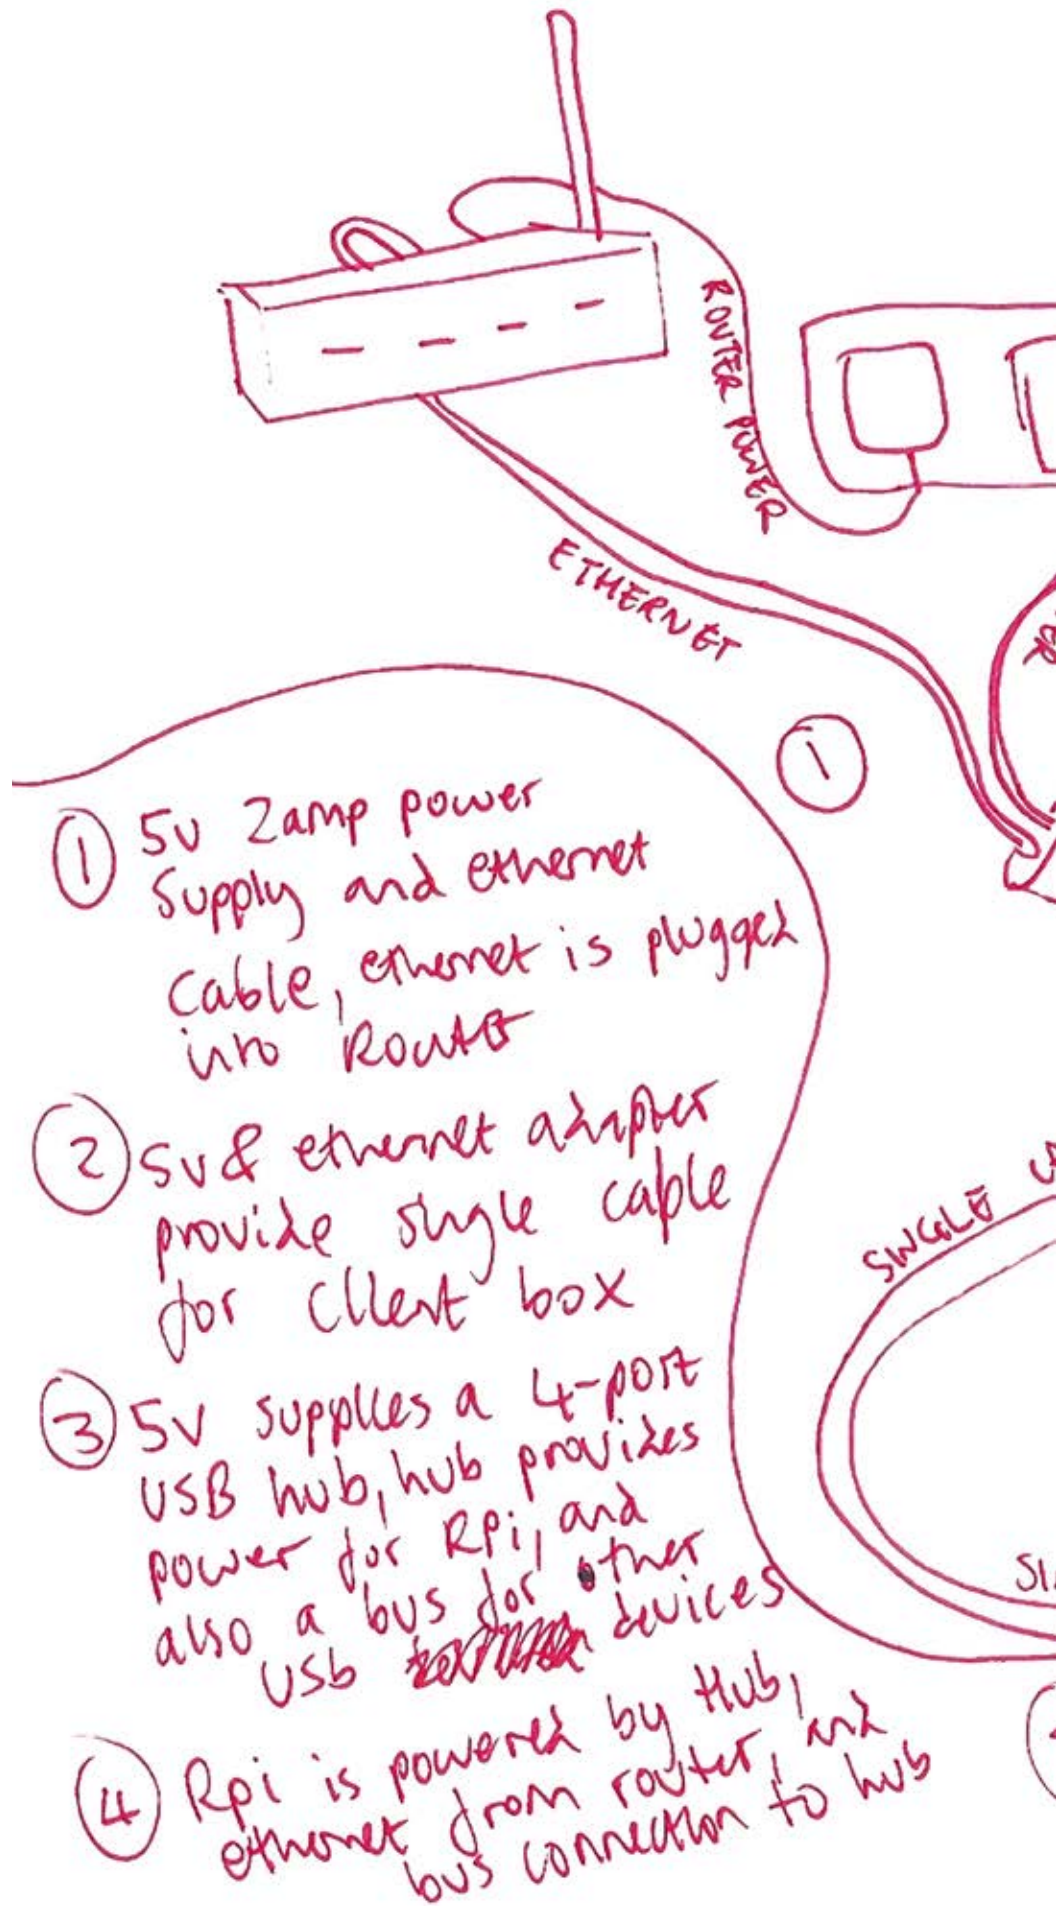 ROUTER POWER
ETHERNET
1
1 5v 2amp power
supply and ethernet
cable, ethernet is plugged
into Router
2 5v & ethernet adapter
provide single cable
for Client box
3 5V supplies a 4-port
USB hub, hub provides
power for RPi, and
also a bus for other
USb devices
SINGLE
4 Rpi is powered by Hub,
ethernet from router, and
bus connection to hub